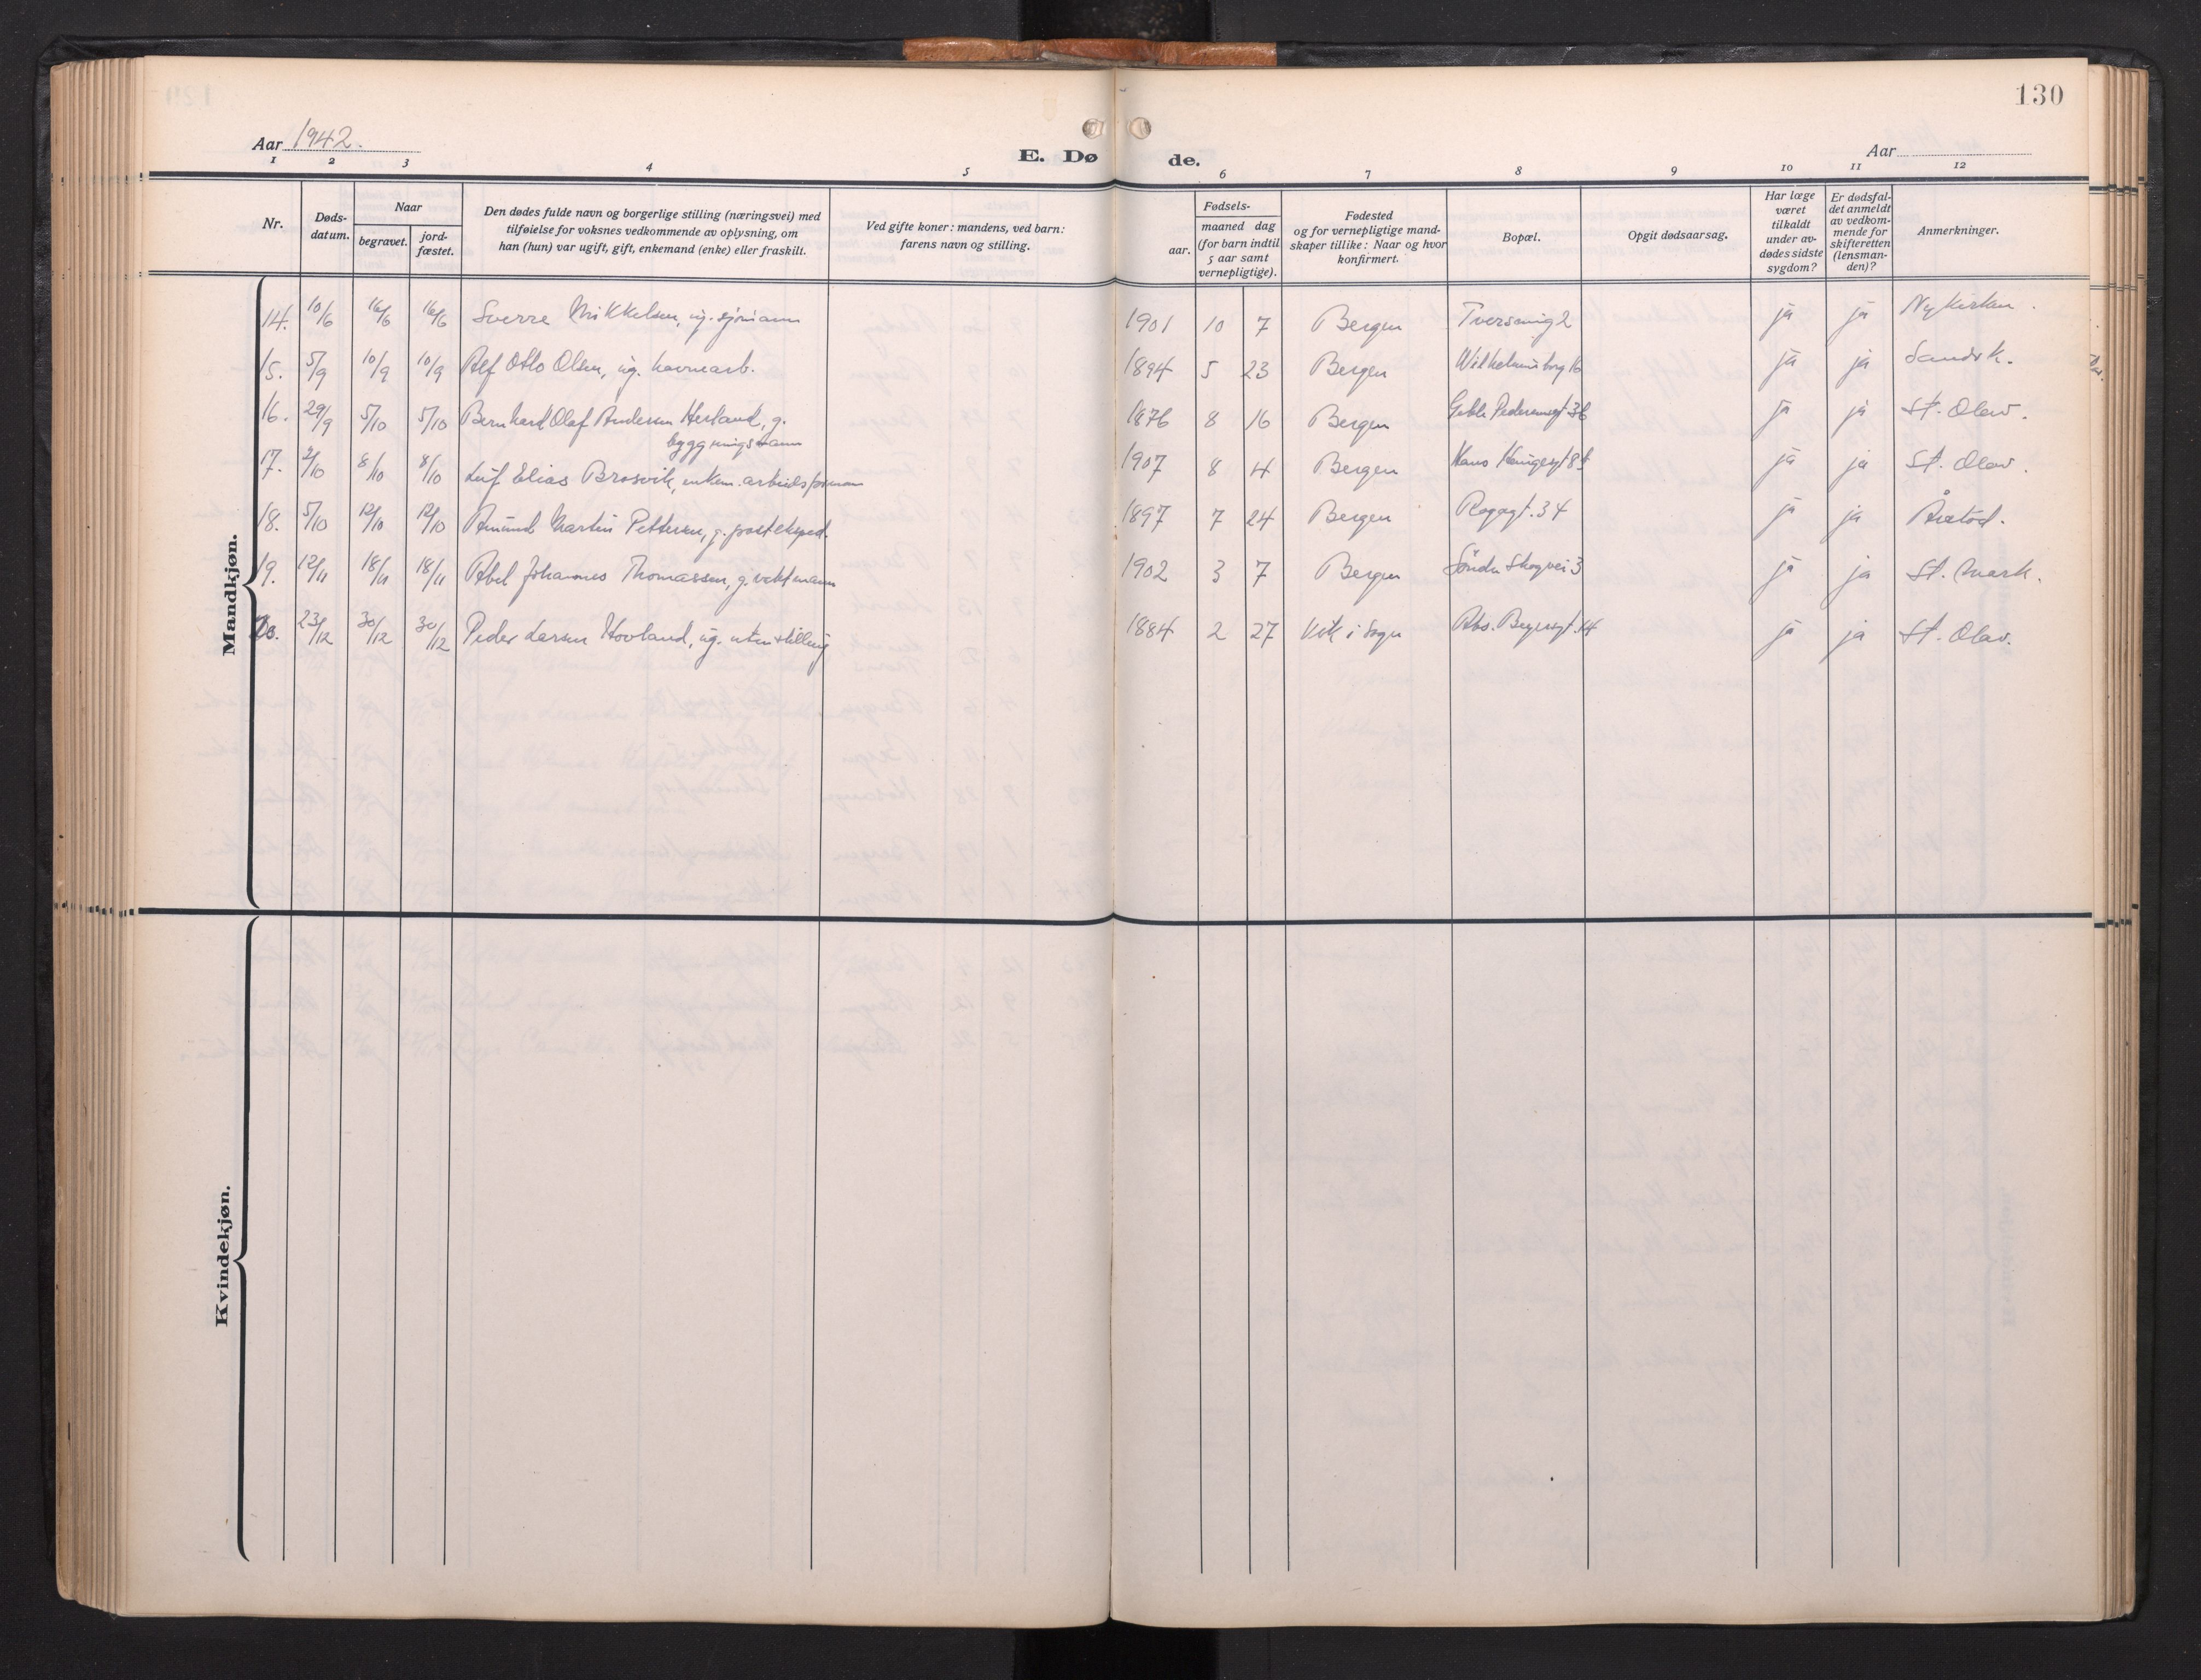 130
Aar 1942.
E. Dø de.
Aar
1 2 3 4 5 6 7 8 9 10 11 12
Nr.
Døds-
datum.
Naar
begravet.
jord-
fæstet.
Den dødes fulde navn og borgerlige stilling (næringsvei) med
tilføielse for voksnes vedkommende av oplysning, om
han (hun) var ugift, gift, enkemand (enke) eller fraskilt.
Ved gifte koner: mandens, ved barn:
farens navn og stilling.
Fødsels-
aar.
maaned dag
(for barn indtil
5 aar samt
vernepligtige).
Fødested
og for vernepligtige mand-
skaper tillike: Naar og hvor
konfirmert.
Bopæl.
Opgit dødsaarsag.
Har læge
været
tilkaldt
under av-
dødes sidste
sygdom?
Er dødsfal-
det anmeldt
av vedkom-
mende for
skifteretten
(lensman-
den)?
Anmerkninger.
Mandkjøn.
14. 10/6 16/6 16/6 Sverre Mikkelsen, ug. sjømann 1901 10 7 Bergen Tversmug 2 ja ja Nykirken.
15. 5/9 10/9 10/9 Alf Otto Olsen, ug. havnearb. 1894 5 23 Bergen ja ja Sandvk.
16. 29/9 5/10 5/10 Bernhard Olaf Andersen Herland, g.
bygningsmann 1876 8 16 Bergen Geble Pedersensgt 36 ja ja St. Olav.
17. 2/10 8/10 8/10 Leif Elias Brosvik, enkem. arbeidsformann 1907 8 4 Bergen Hans Haugesgt ja ja St. Olav.
18. 5/10 12/10 12/10 Amund Martin Pettersen, g. posteksped. 1897 7 24 Bergen 34 ja ja Årstad.
19. 12/11 18/11 18/11 Abel Johannes Thomassen, g. vektmann 1902 3 7 Bergen Söndre Skogvei 3 ja ja St. Mark.
20. 23/12 30/12 30/12 Peder Larsen Hovland, ug. uten stilling 1884 2 27 Vik i Sogn Abs. Beyersgt. 14 ja ja St. Olav.
Kvindekjøn.